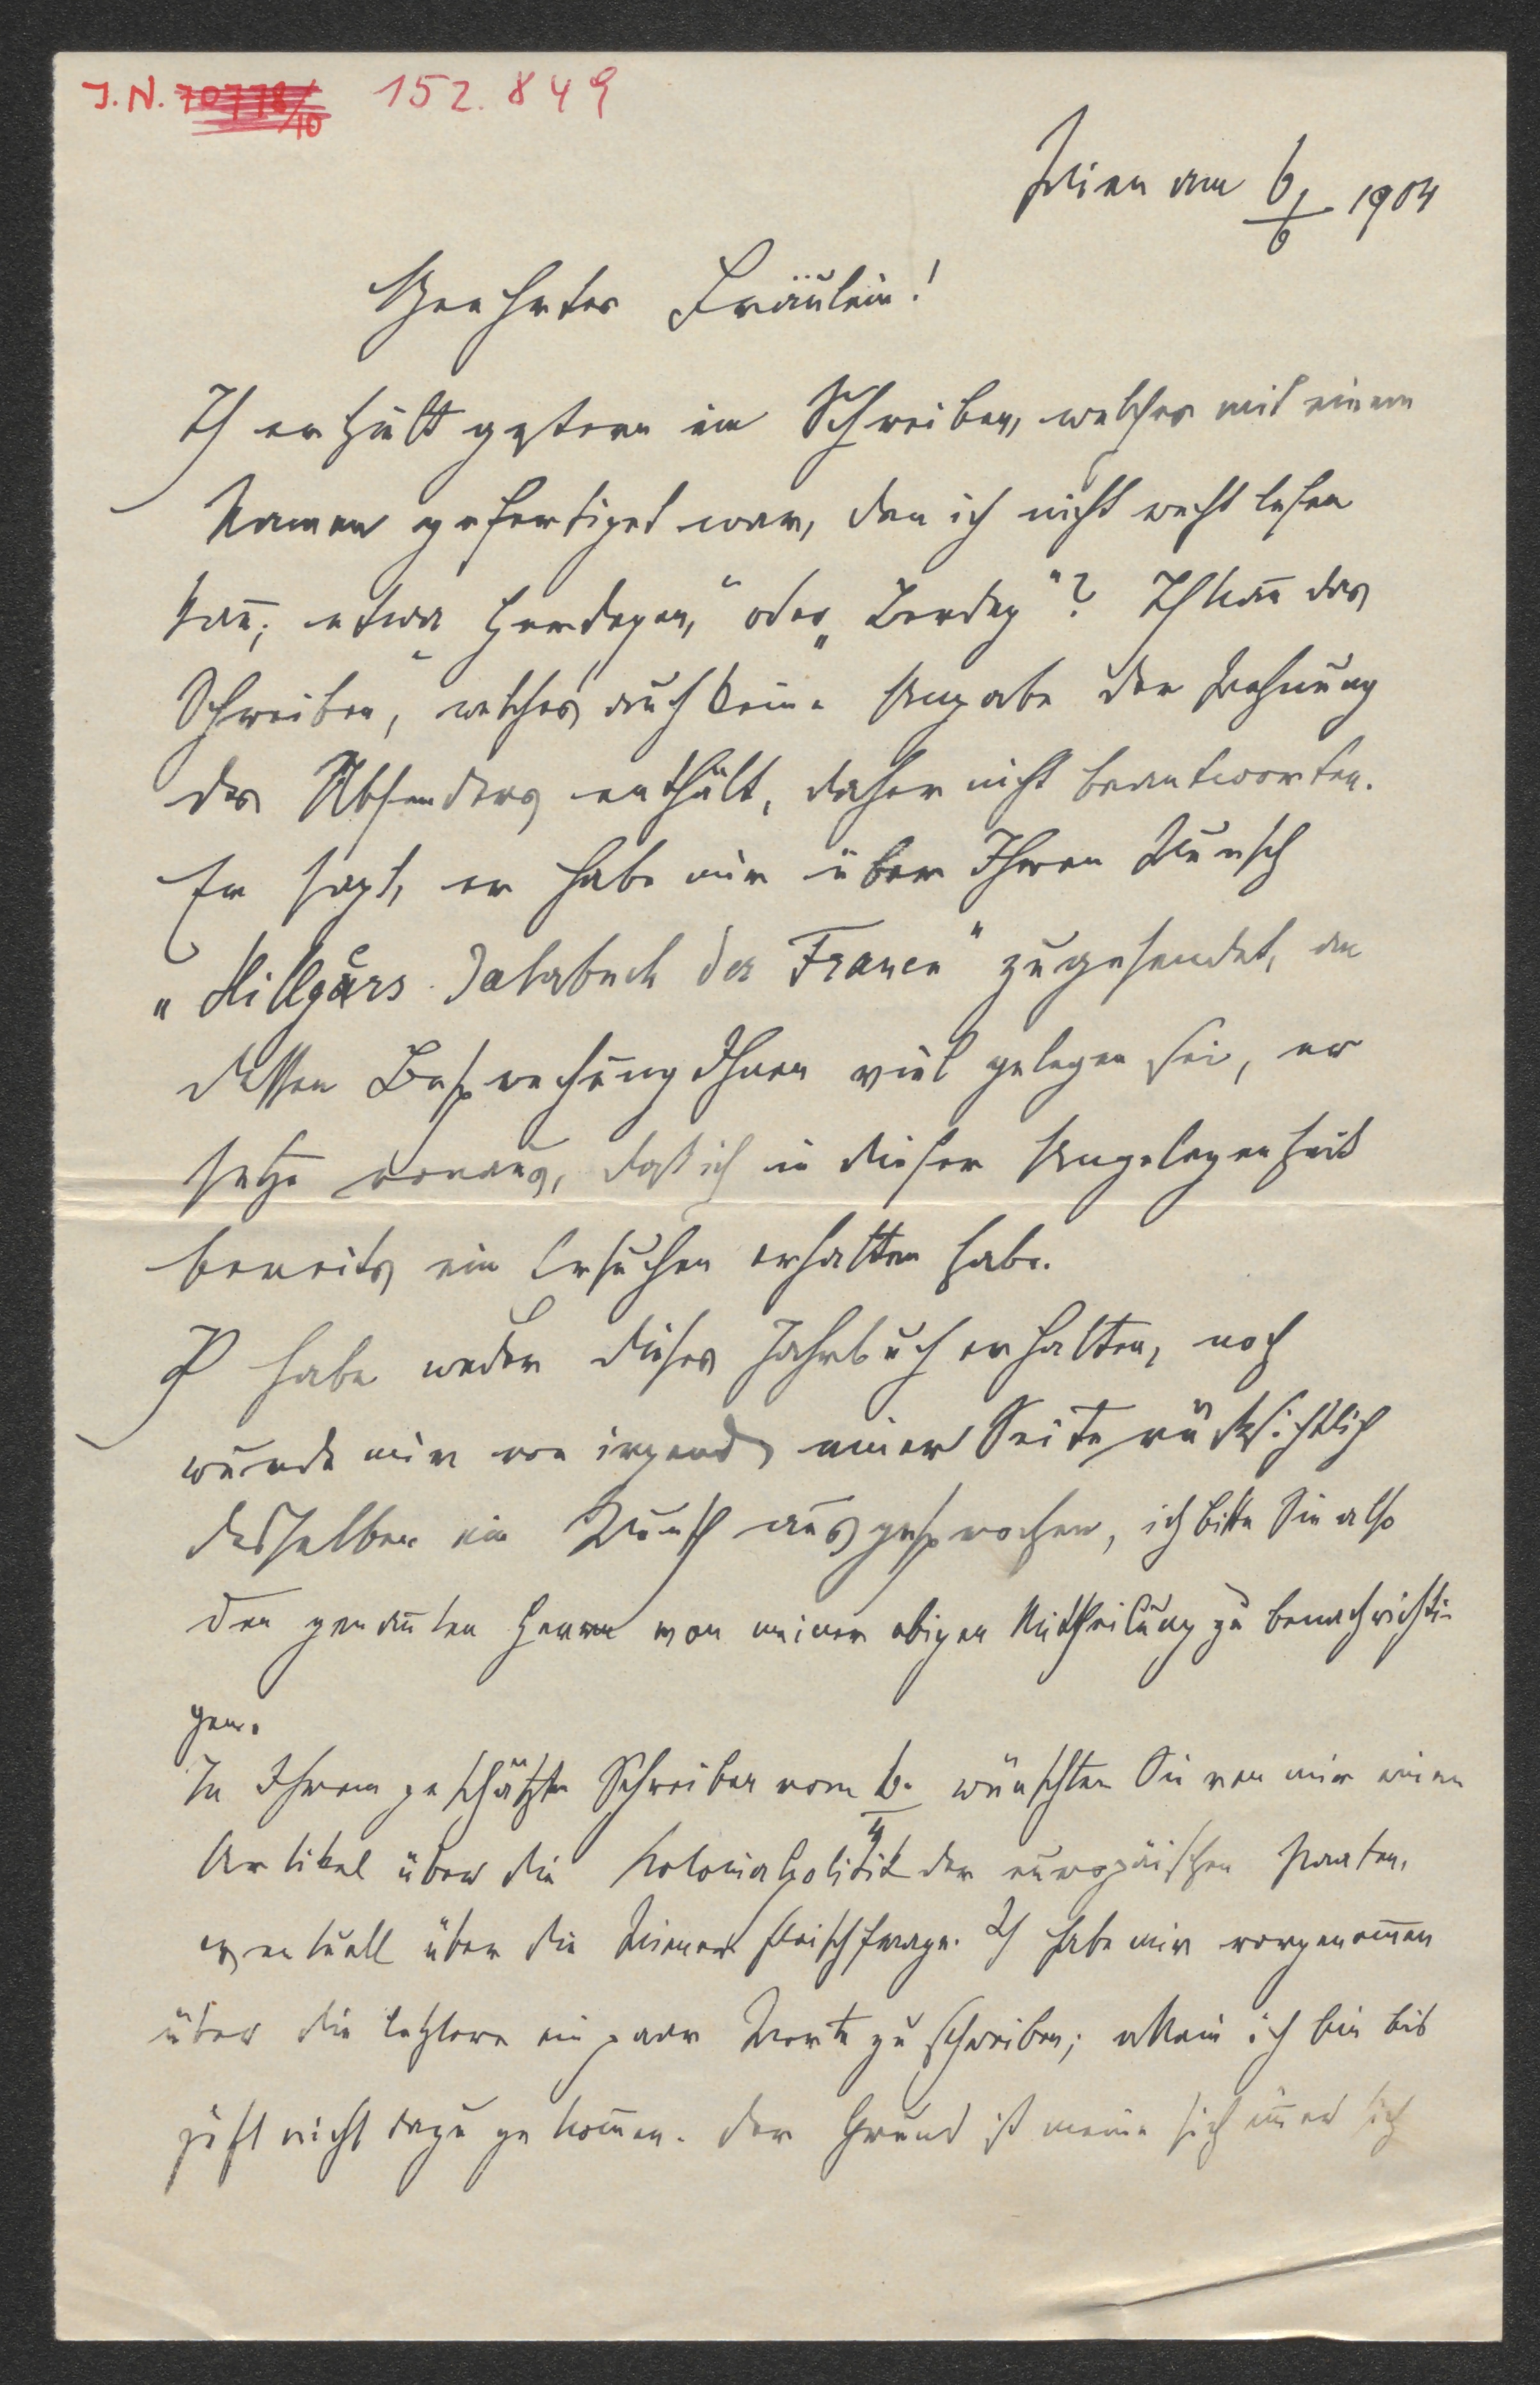 J. N. 70778/10 152.849
Wien am 6/6 1904
Geehrtes Fräulein!
Ich erhielt gestern ein Schreiben, welches mit einem
Namen gefertiget war, den ich nicht recht lesen
kann; etwa oder Ich kann das
Schreiben, welches auch keine Angabe der Wohnung
des Absenders enthält, daher nicht beantworten.
Er sagt, er habe mir über Ihren Wunsch
„Hillgers Jahrbuch der Frauen" zugesendet, an
dessen Besprechung Ihnen viel gelegen sei, er
setze voraus, daß ich in dieser Angelegenheit
bereits ein Ersuchen erhalten habe.
Ich habe weder dieses Jahrbuch erhalten, noch
wurde mir von irgend einer Seite rücksichtlich
desselben ein Wunsch ausgesprochen, ich bitte Sie also
den genannten Herrn von meiner obigen Mittheilung zu benachrichti-
gen.
In Ihrem geschätzten Schreiben vom 6./4 wünschten Sie von mir einen
Artikel über die Kolonialpolitik der europäischen Staaten,
eventuell über die Wiener Fleischfrage. Ich habe mir vorgenommen
über die letztere ein paar Worte zu schreiben; allein ich bin bis
jetzt nicht dazu gekommen. Der Grund ist meine sich immer sich